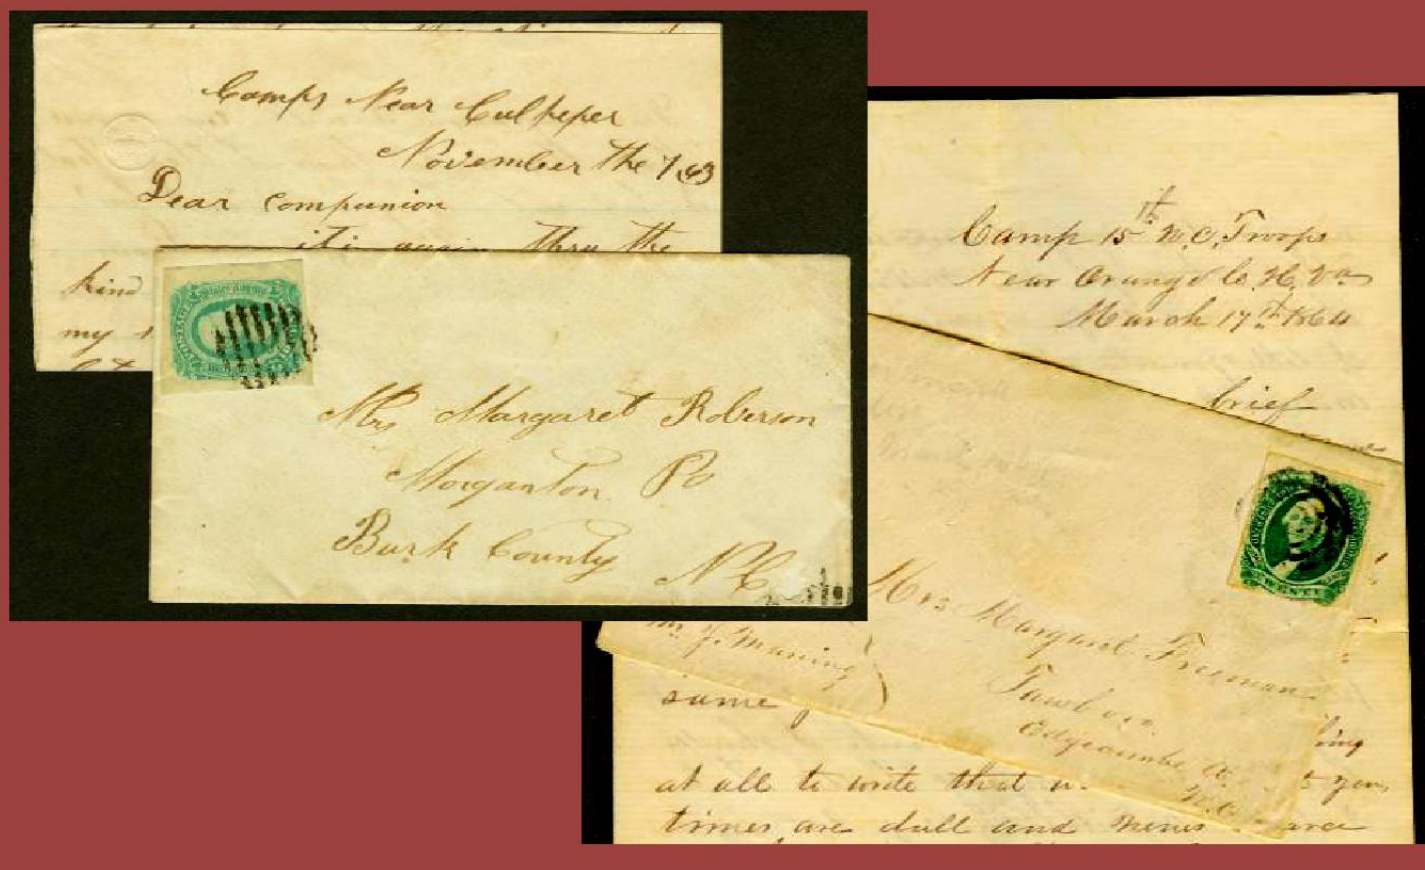 Camp Near Culpeper
November the 7 63
Dear companion
thru the
kind
my
Mrs Margaret Roberson
Morganton Po
Burk County N C
Camp 15th N.C. Troops
Near Orange C. H. Va
March 17th 1864
brief
Mrs Margaret Freeman
Tawboro
Edgecombe Co
N.C.
same
at all to write that
times are dull and news